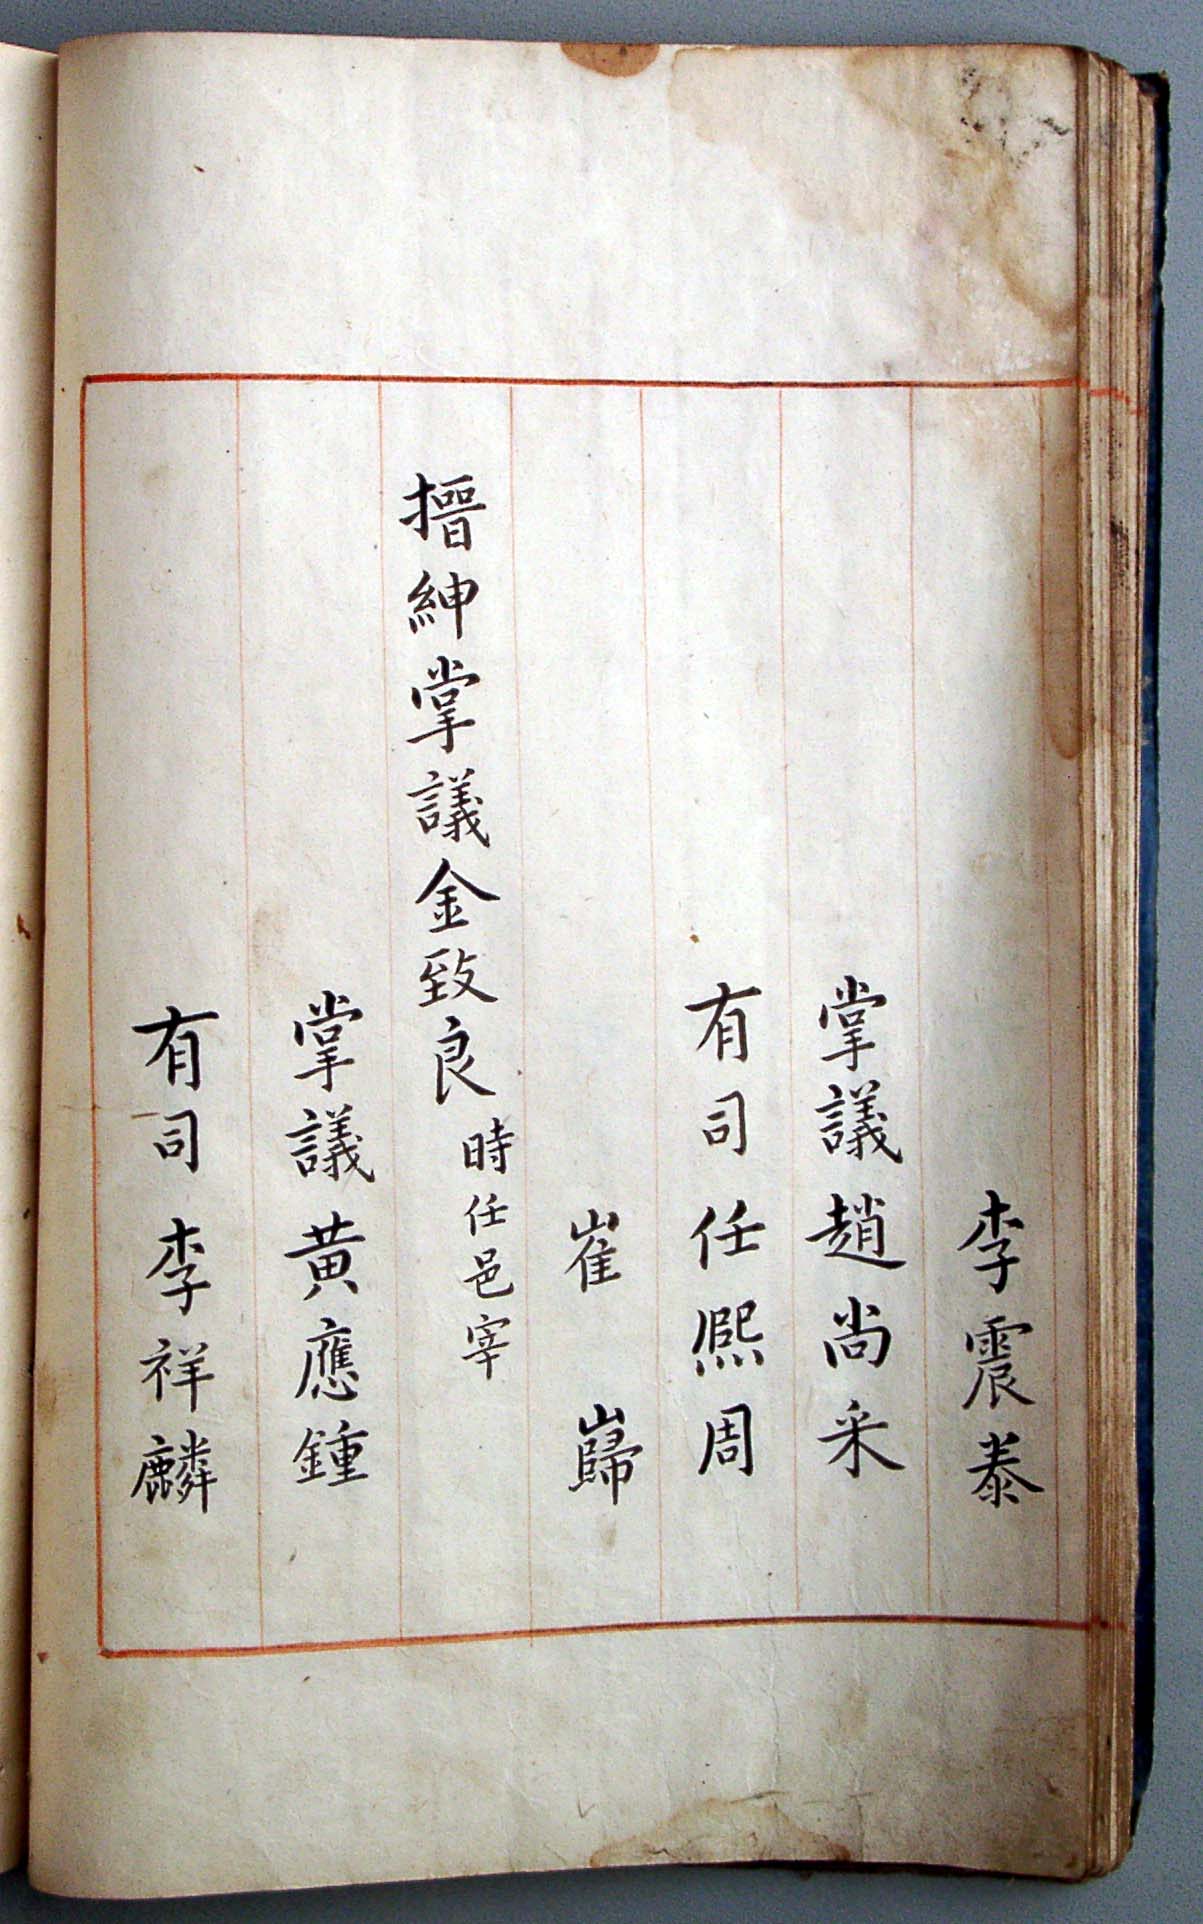 李震泰
掌議趙尚采
有司任熈周
崔巋
搢紳掌議金致良時任邑宰
掌議黃應鍾
有司李祥麟